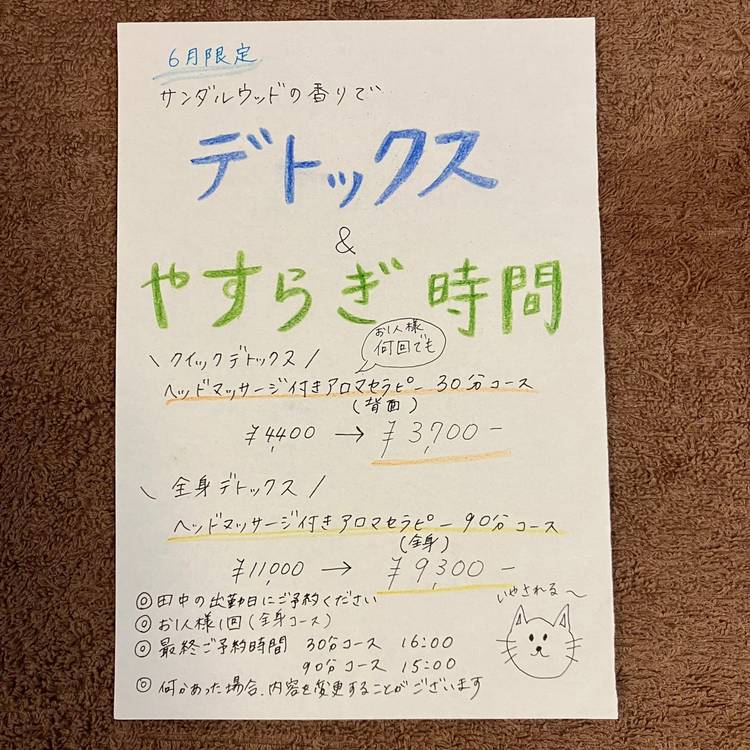 6月限定
サンダルウッドの香りで
デトックス
&
やすらぎ時間
お1人様
何回でも
\ クイックデトックス /
ヘッドマッサージ付きアロマセラピー 30分コース
(背面)
¥4,400 → ¥3,700-
\ 全身デトックス /
ヘッドマッサージ付きアロマセラピー 90分コース
(全身)
¥11,000 → ¥9,300-
◎ 田中の出勤日にご予約ください
◎ お1人様1回(全身コース)
◎ 最終ご予約時間 30分コース 16:00
90分コース 15:00
◎ 何かあった場合、内容を変更することがございます
いやされる〜